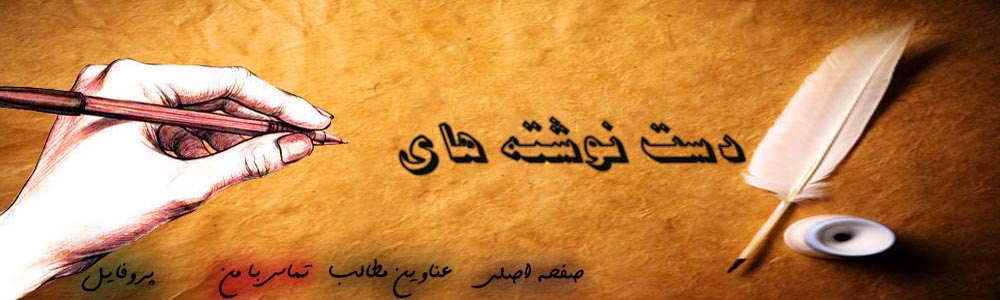 دست نوشته های
صفحه اصلی عناوین مطالب تماس با من پروفایل